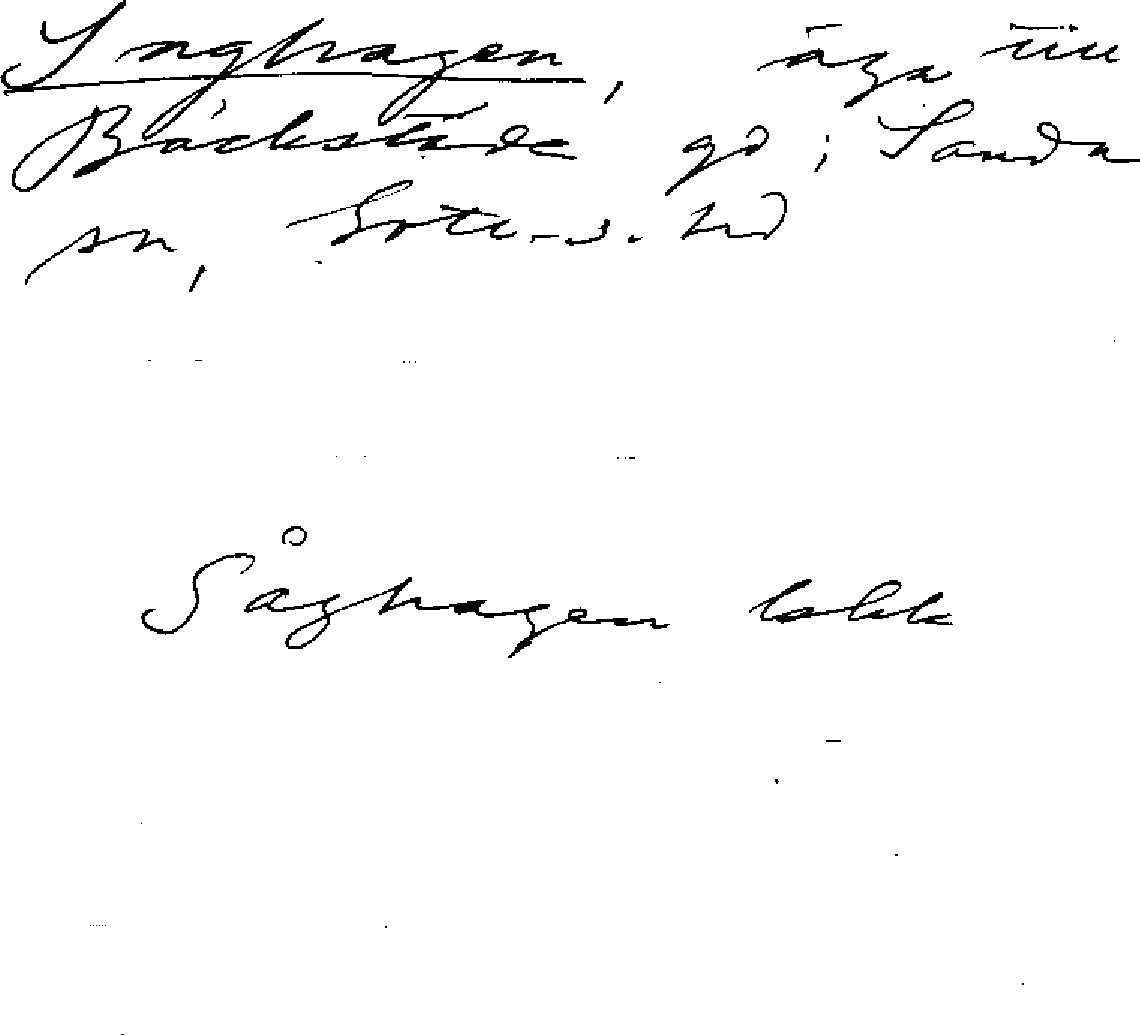 Inghagen, äga till
Bäckstäde gd i Sanda
sn, Gotl. s. hd
Såghagen lokk